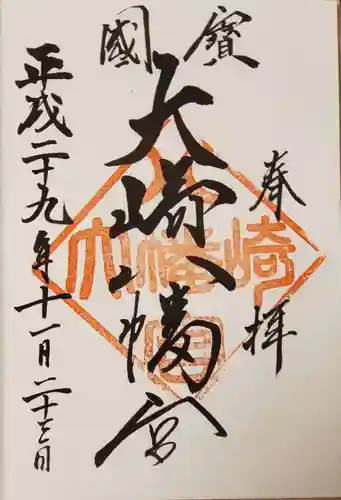 奉拝
國寳
大崎八幡宮
平成二十九年十一月二十三日
大崎八幡宮